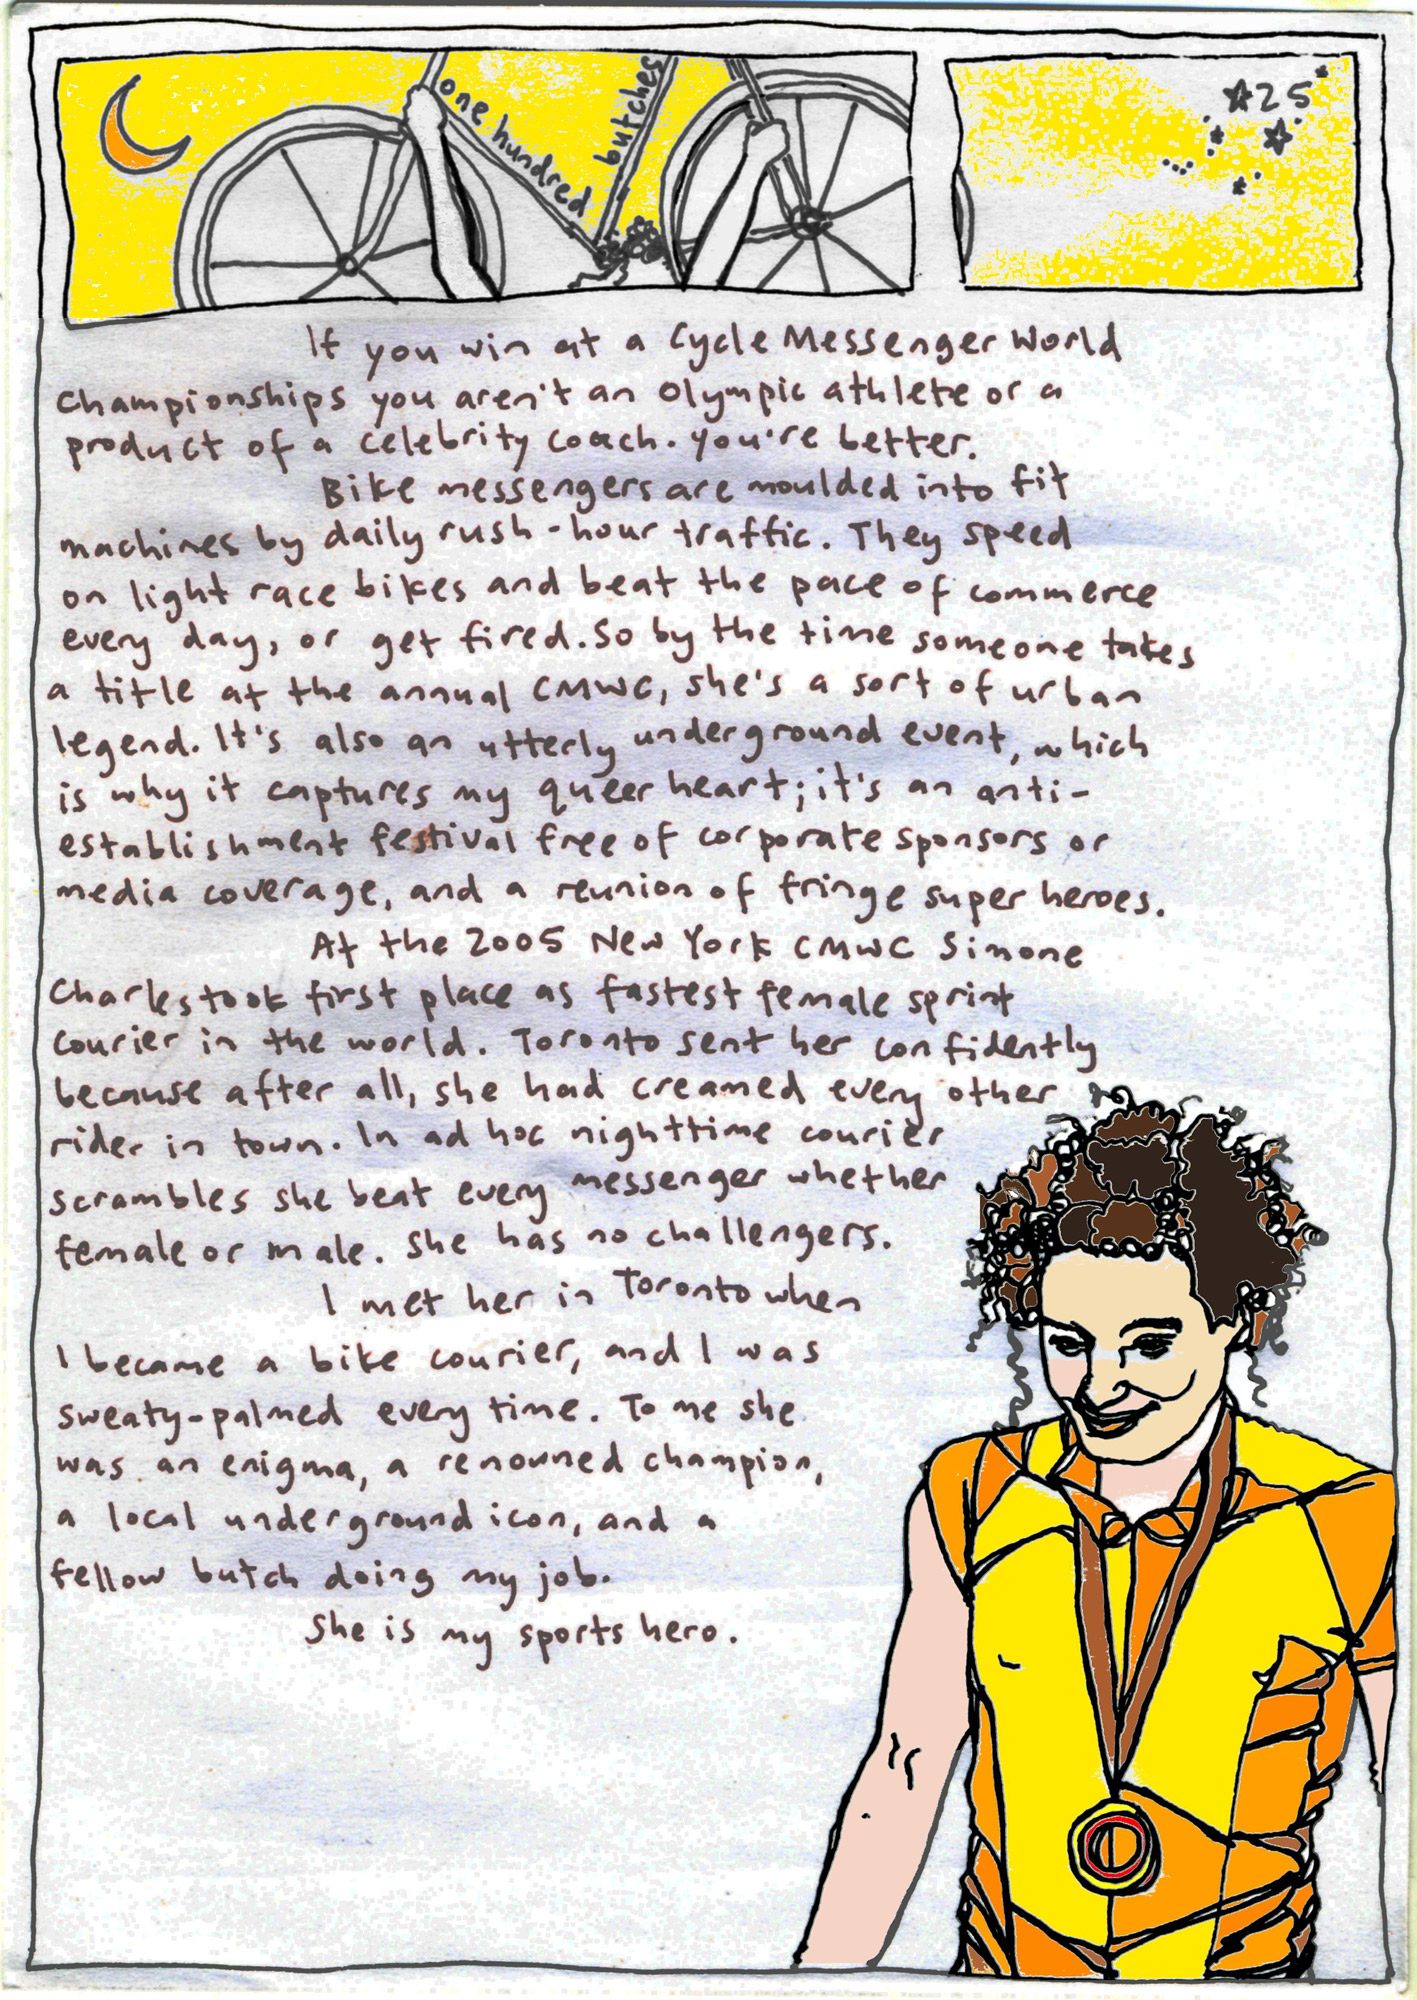 one hundred butches
☆25
If you win at a Cycle Messenger World
Championships you aren't an Olympic athlete or a
product of a celebrity coach. You're better.
Bike messengers are moulded into fit
machines by daily rush-hour traffic. They speed
on light race bikes and beat the pace of commerce
every day, or get fired. So by the time someone takes
a title at the annual CMWC, she's a sort of urban
legend. It's also an utterly underground event, which
is why it captures my queer heart; it's an anti-
establishment festival free of corporate sponsors or
media coverage, and a reunion of fringe super heroes.
At the 2005 New York CMWC Simone
Charles took first place as fastest female sprint
courier in the world. Toronto sent her confidently
because after all, she had creamed every other
rider in town. In ad hoc nighttime courier
scrambles she beat every messenger whether
female or male. She has no challengers.
I met her in Toronto when
I became a bike courier, and I was
sweaty-palmed every time. To me she
was an enigma, a renowned champion,
a local underground icon, and a
fellow butch doing my job.
She is my sports hero.